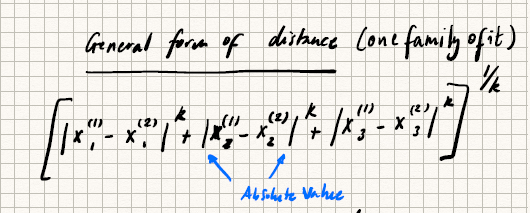 General form of distance (one family of it)
[|x₁⁽¹⁾ - x₁⁽²⁾|ᵏ + |x₂⁽¹⁾ - x₂⁽²⁾|ᵏ + |x₃⁽¹⁾ - x₃⁽²⁾|ᵏ]^1/k
Absolute Value